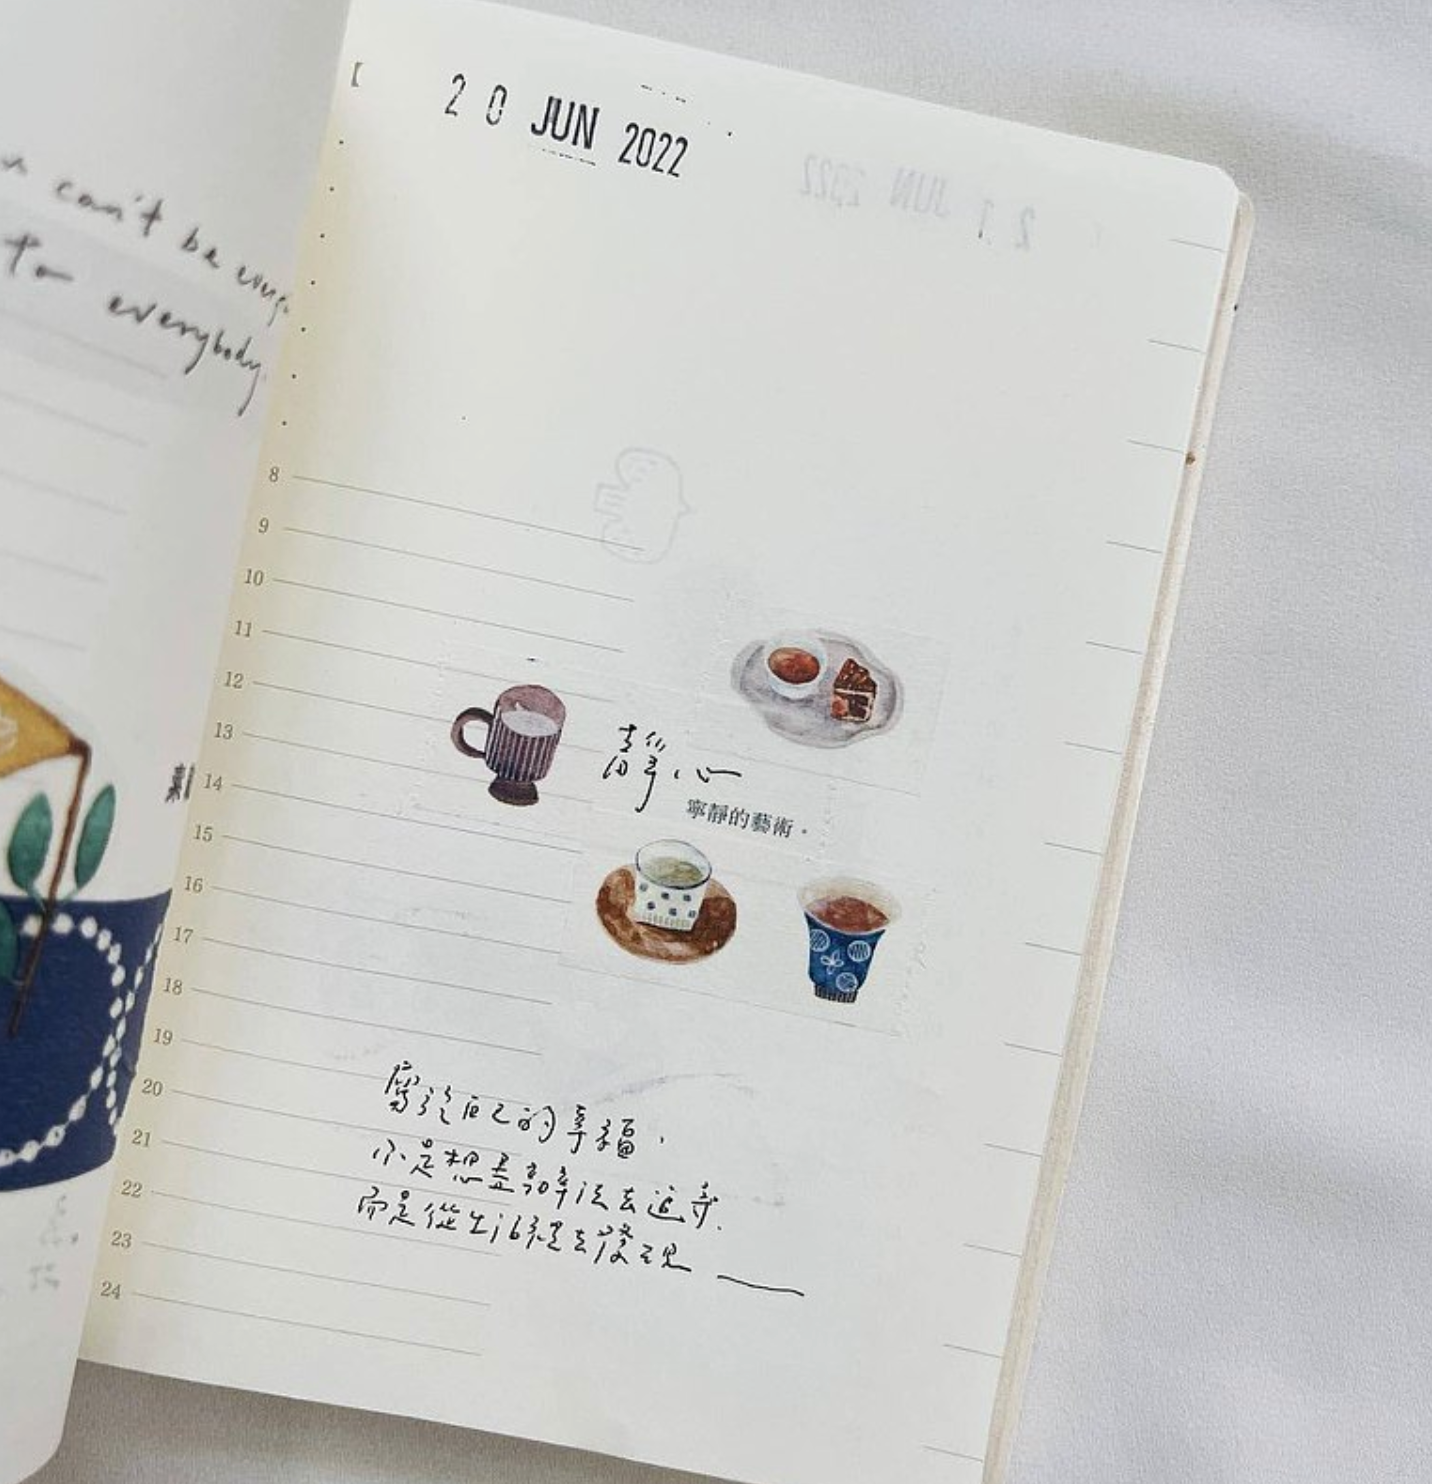 can't be
to everybody.
20 JUN 2022
21 JUN 2022
8
9
10
11
12
13
14
15
16
17
18
19
20
21
22
23
24
靜心
寧靜的藝術。
屬於自己的幸福,
不是想盡辦法去追尋.
而是從生活裡去發現——